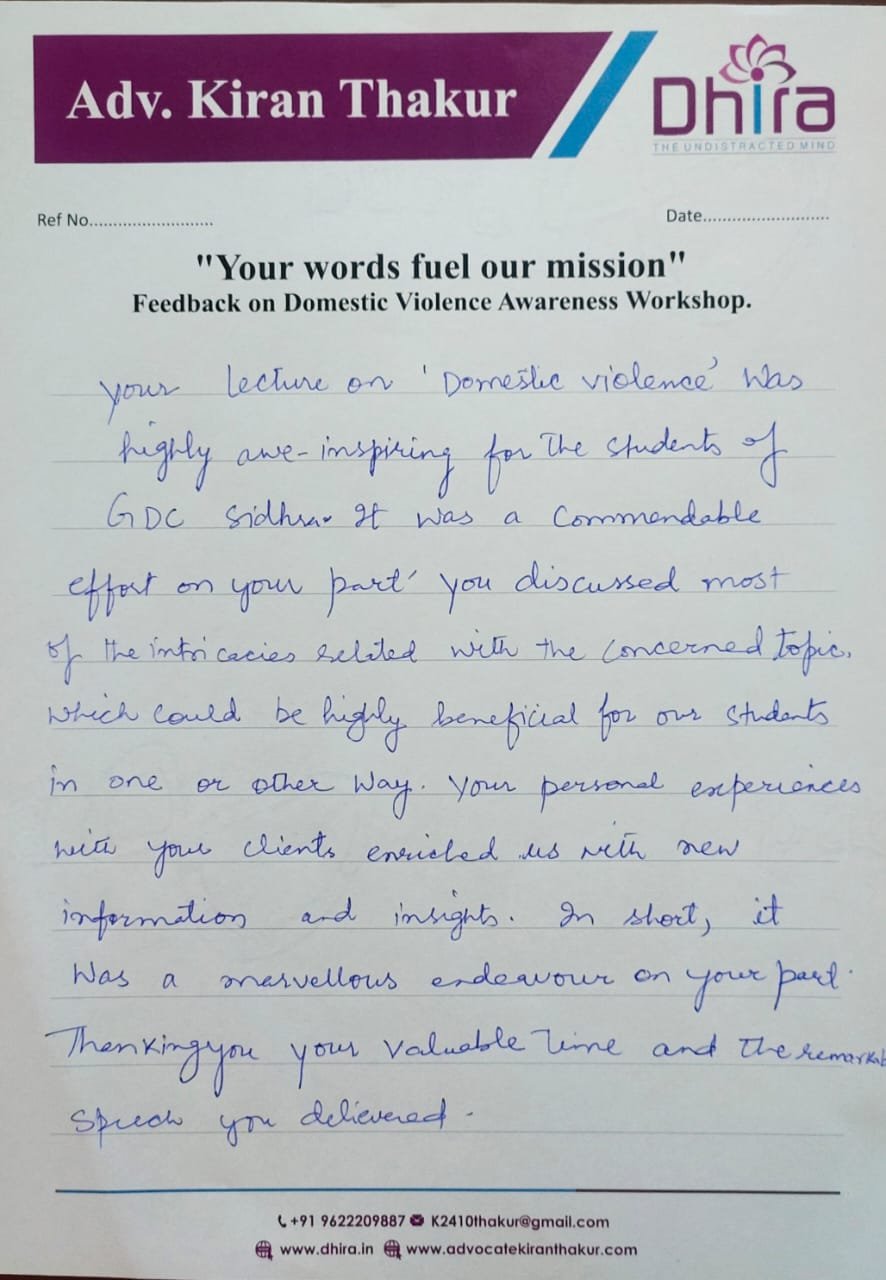 Adv. Kiran Thakur
Dhira
THE UNDISTRACTED MIND
Ref No..........................
Date..........................
"Your words fuel our mission"
Feedback on Domestic Violence Awareness Workshop.
your lecture on 'Domestic violence' was
highly awe-inspiring for the students of
GDC Sidhra. It was a Commendable
effort on your part' you discussed most
of the intricacies related with the concerned topic,
which could be highly beneficial for our students
in one or other way. your personal experiences
with your clients enriched us with new
information and insights. In short, it
was a marvellous endeavour on your part.
Thankingyou your valuable time and the remarkab
speech you delievered.
+91 9622209887 K2410thakur@gmail.com
www.dhira.in www.advocatekiranthakur.com